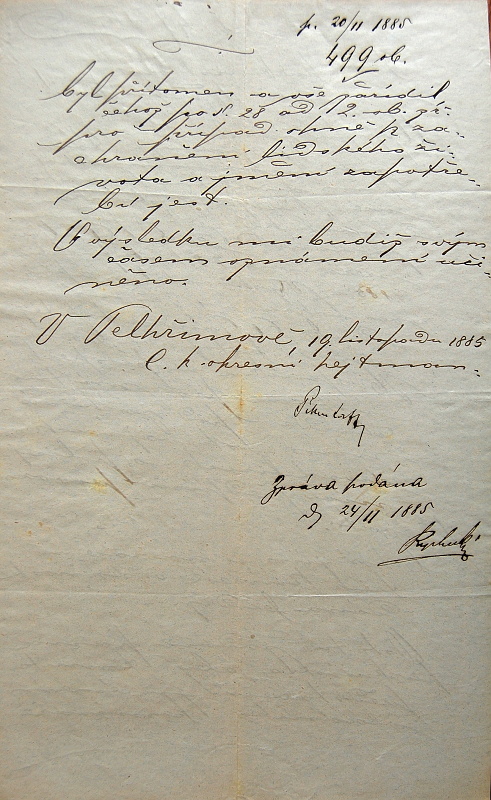 p. 20/11 1885
499 ob.
byl přítomen a vše zařídil
čehož po d. 28 ad 2. ob. zř.
pro případ ohně k za-
chránění lidského ži-
vota a jmění zapotře-
bí jest.
O výsledku mi budiž svým
časem oznámení uči-
něno.
V Pelhřimově, 19. listopadu 1885
C. k. okresní hejtman.
Zpráva podána
24/11 1885